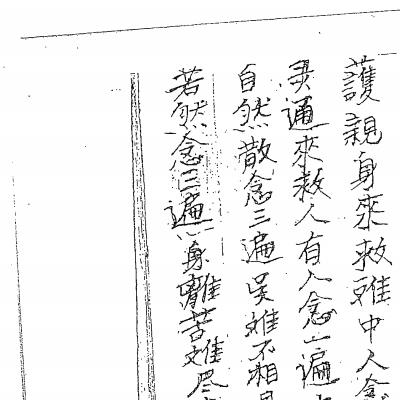 護親身來救難中人念
灵通來救人有人念一遍
自然散念三遍灵难不相
若然念三遍身離苦难尽